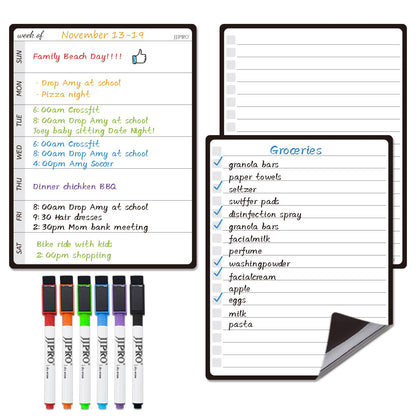 week of November 13-19 JJPRO
SUN Family Beach Day!!!!
MON - Drop Amy at school
- Pizza night
TUE 6:00am Crossfit
8:00am Drop Amy at school
Joey baby sitting Date Night!
WED 6:00am Crossfit
8:00am Drop Amy at school
4:00pm Amy Soccer
THU Dinner chichken BBQ
FRI 8:00am Drop Amy at school
9:30 Hair dresses
2:30pm Mom bank meeting
SAT Bike ride with kids
2:00pm shopping
Groceries
granola bars
paper towels
seltzer
swiffer pads
disinfection spray
granola bars
facialmilk
perfume
washingpowder
facialcream
apple
eggs
milk
pasta
JJPRO
JJPRO
JJPRO
JJPRO
JJPRO
JJPRO